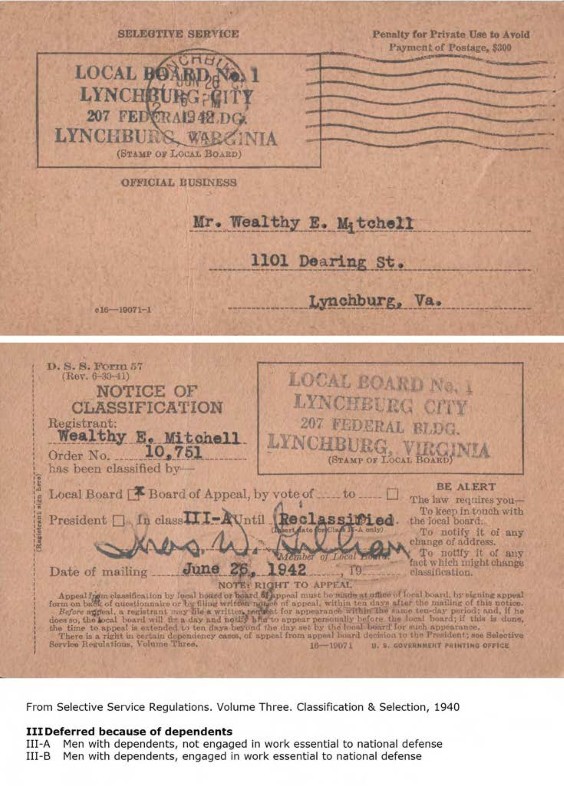 SELECTIVE SERVICE
Penalty for Private Use to Avoid
Payment of Postage, $300
LOCAL BOARD No. 1
LYNCHBURG CITY
207 FEDERAL BLDG.
LYNCHBURG, VIRGINIA
(STAMP OF LOCAL BOARD)
JUN 26
1942
OFFICIAL BUSINESS
Mr. Wealthy E. Mitchell
1101 Dearing St.
Lynchburg, Va.
c16—19071-1
D. S. S. Form 57
(Rev. 6-30-41)
NOTICE OF
CLASSIFICATION
Registrant:
Wealthy E. Mitchell
Order No. 10,751
has been classified by—
LOCAL BOARD No. 1
LYNCHBURG CITY
207 FEDERAL BLDG.
LYNCHBURG, VIRGINIA
(STAMP OF LOCAL BOARD)
(Registrant sign here)
Local Board Board of Appeal, by vote of to
President In class III-A Until Reclassified.
Member of Local Board.
Date of mailing June 26, 1942
BE ALERT
The law requires you—
To keep in touch with
the local board.
To notify it of any
change of address.
To notify it of any
fact which might change
classification.
NOTE: RIGHT TO APPEAL
Appeal from classification by local board or board of appeal must be made at office of local board, by signing appeal
form on back of questionnaire or by filing written notice of appeal, within ten days after the mailing of this notice.
Before appeal, a registrant may file a written request for appearance within the same ten-day period; and, if he
does so, the local board will fix a day and notify him to appear personally before the local board; if this is done,
the time to appeal is extended to ten days beyond the day set by the local board for such appearance.
There is a right in certain dependency cases, of appeal from appeal board decision to the President; see Selective
Service Regulations, Volume Three.
16—19071 U. S. GOVERNMENT PRINTING OFFICE
From Selective Service Regulations. Volume Three. Classification & Selection, 1940
III Deferred because of dependents
III-A Men with dependents, not engaged in work essential to national defense
III-B Men with dependents, engaged in work essential to national defense